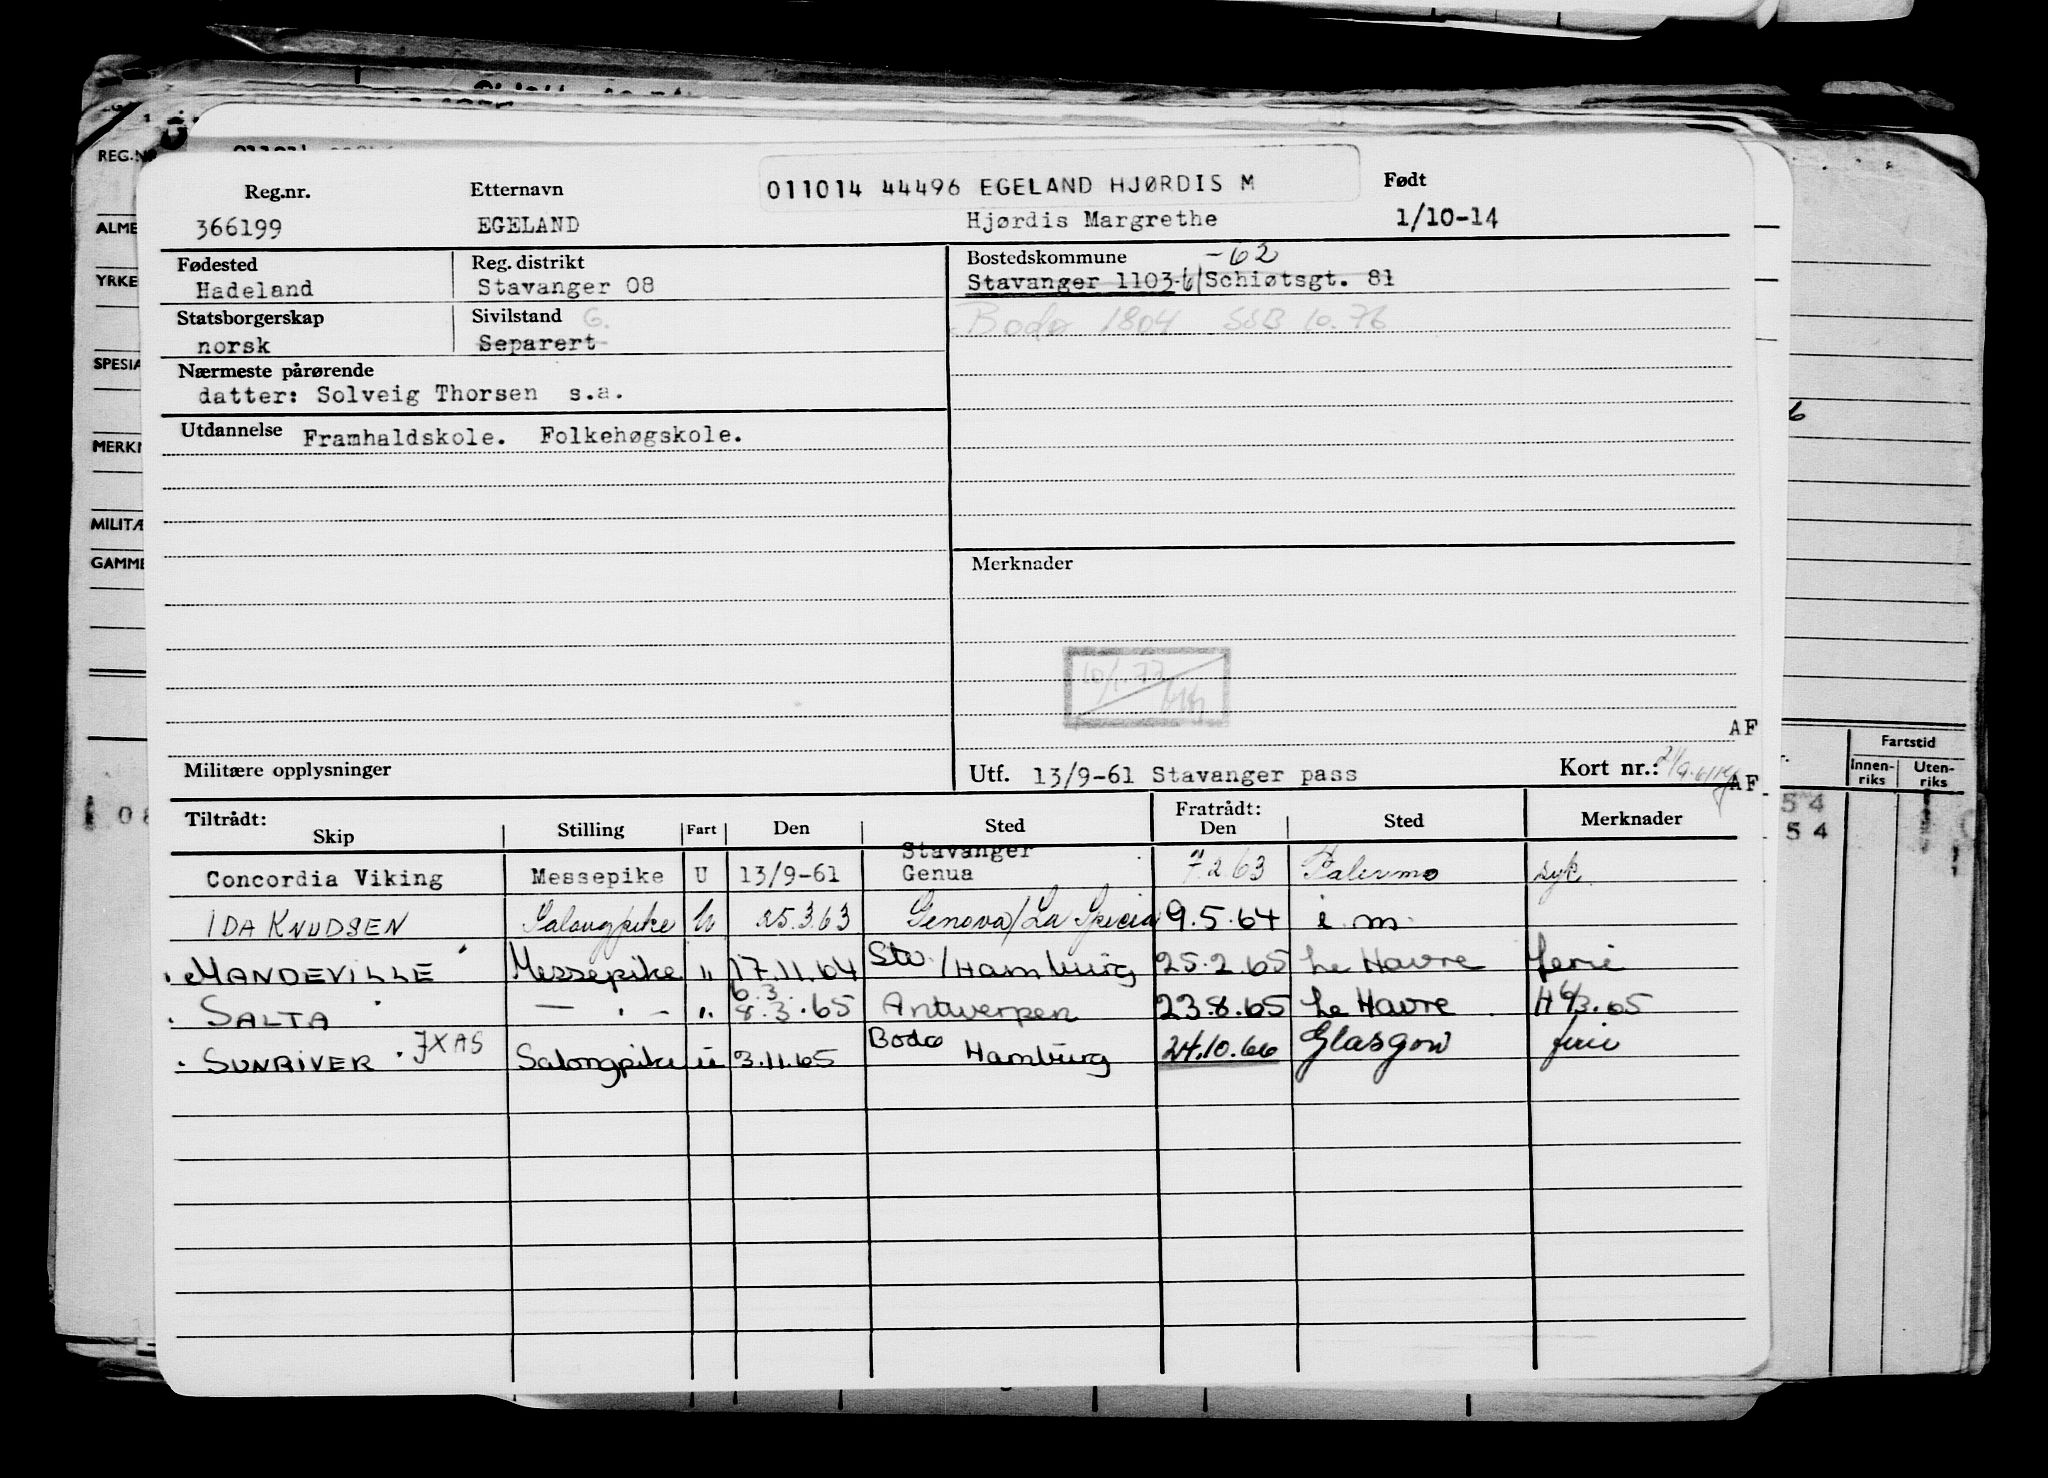 REG.NR
Reg.nr. Etternavn 011014 44496 EGELAND HJØRDIS M Født
366199 EGELAND Hjørdis Margrethe 1/10-14
ALME
YRKE
SPESIA
MERKN
MILITÆ
GAMME
Fødested Reg. distrikt Bostedskommune -62
Hadeland Stavanger 08 Stavanger 1103-61 Schiøtsgt. 81
Statsborgerskap Sivilstand G. Bodø 1804 SSB 10.76
norsk Separert
Nærmeste pårørende
datter: Solveig Thorsen s.a.
Utdannelse Framhaldskole. Folkehøgskole.
Merknader
10/1.77
AF
Militære opplysninger Utf. 13/9-61 Stavanger pass Kort nr.:
AF
Fartstid
Innen-riks Uten-riks
08
54
54
Tiltrådt: Fratrådt:
Skip Stilling Fart Den Sted Den Sted Merknader
Stavanger
Concordia Viking Messepike U 13/9-61 Genua 7.2.63 Palermo syk
IDA KNUDSEN Salongpike U 25.3.63 Genova/La Spezia 9.5.64 i.m.
MANDEVILLE Messepike " 17.11.64 Stv./Hamburg 25.2.65 Le Havre ferie
6.3.
SALTA — " — " 8.3.65 Antwerpen 23.8.65 Le Havre H 6/3.65
SUNRIVER JXAS Salongpike u 3.11.65 Bodø Hamburg 24.10.66 Glasgow ferie